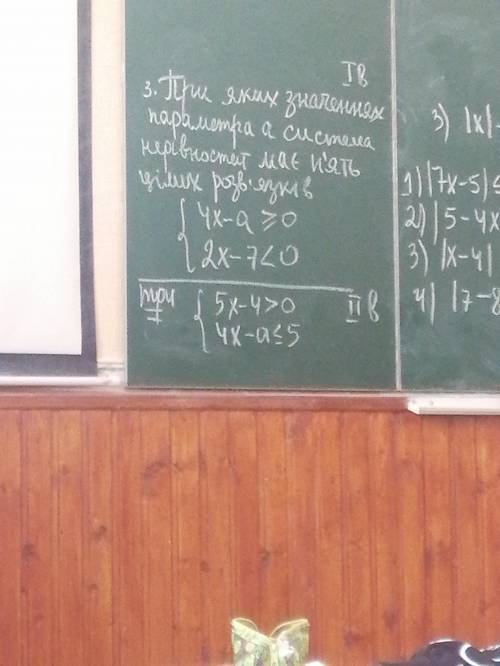 I в
3. При яких значеннях
параметра а система
нерівностей має п'ять
цілих розв'язків
4x-a≥0
2x-7<0
три
5x-4>0
II в
4x-a≤5
3) |x|-
1) |7x-5|≤
2) |5-4x
3) |x-4|
4) |7-8